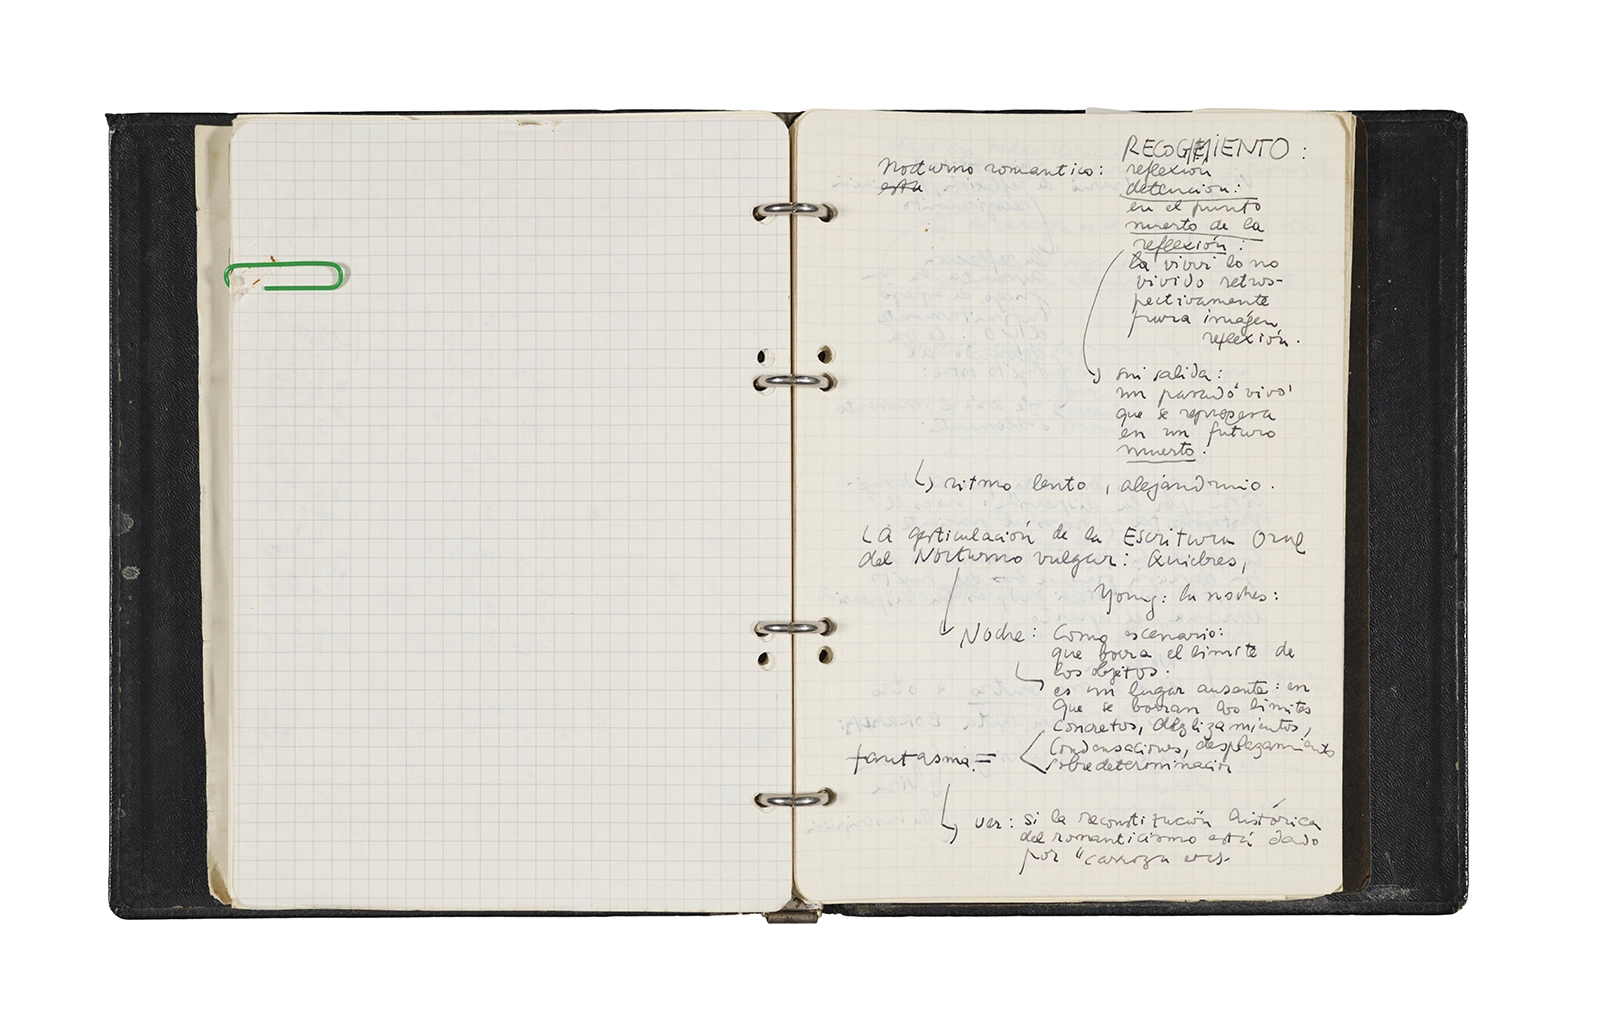 RECOGIMIENTO :
Nocturno romantico: reflexión
esta detencion:
en el punto
muerto de la
reflexión :
la vivir lo no
vivido retros-
pectivamente
pura imágen
reflexión.
sin salida:
un pasado 'vivo'
que se
en un futuro
muerto.
ritmo lento, alejandrino.
La articulación de la Escritura Oral
del Nocturno vulgar: Quiebres,
Young: la noches:
Noche: Como escenario:
que borra el límite de
los objetos.
es un lugar ausente: en
que se borran los límites
concretos, deslizamientos,
fantasma = Condensaciones, desplazamiento
sobredeterminación
ver: si la reconstitución histórica
del romanticismo está dado
por "carroza